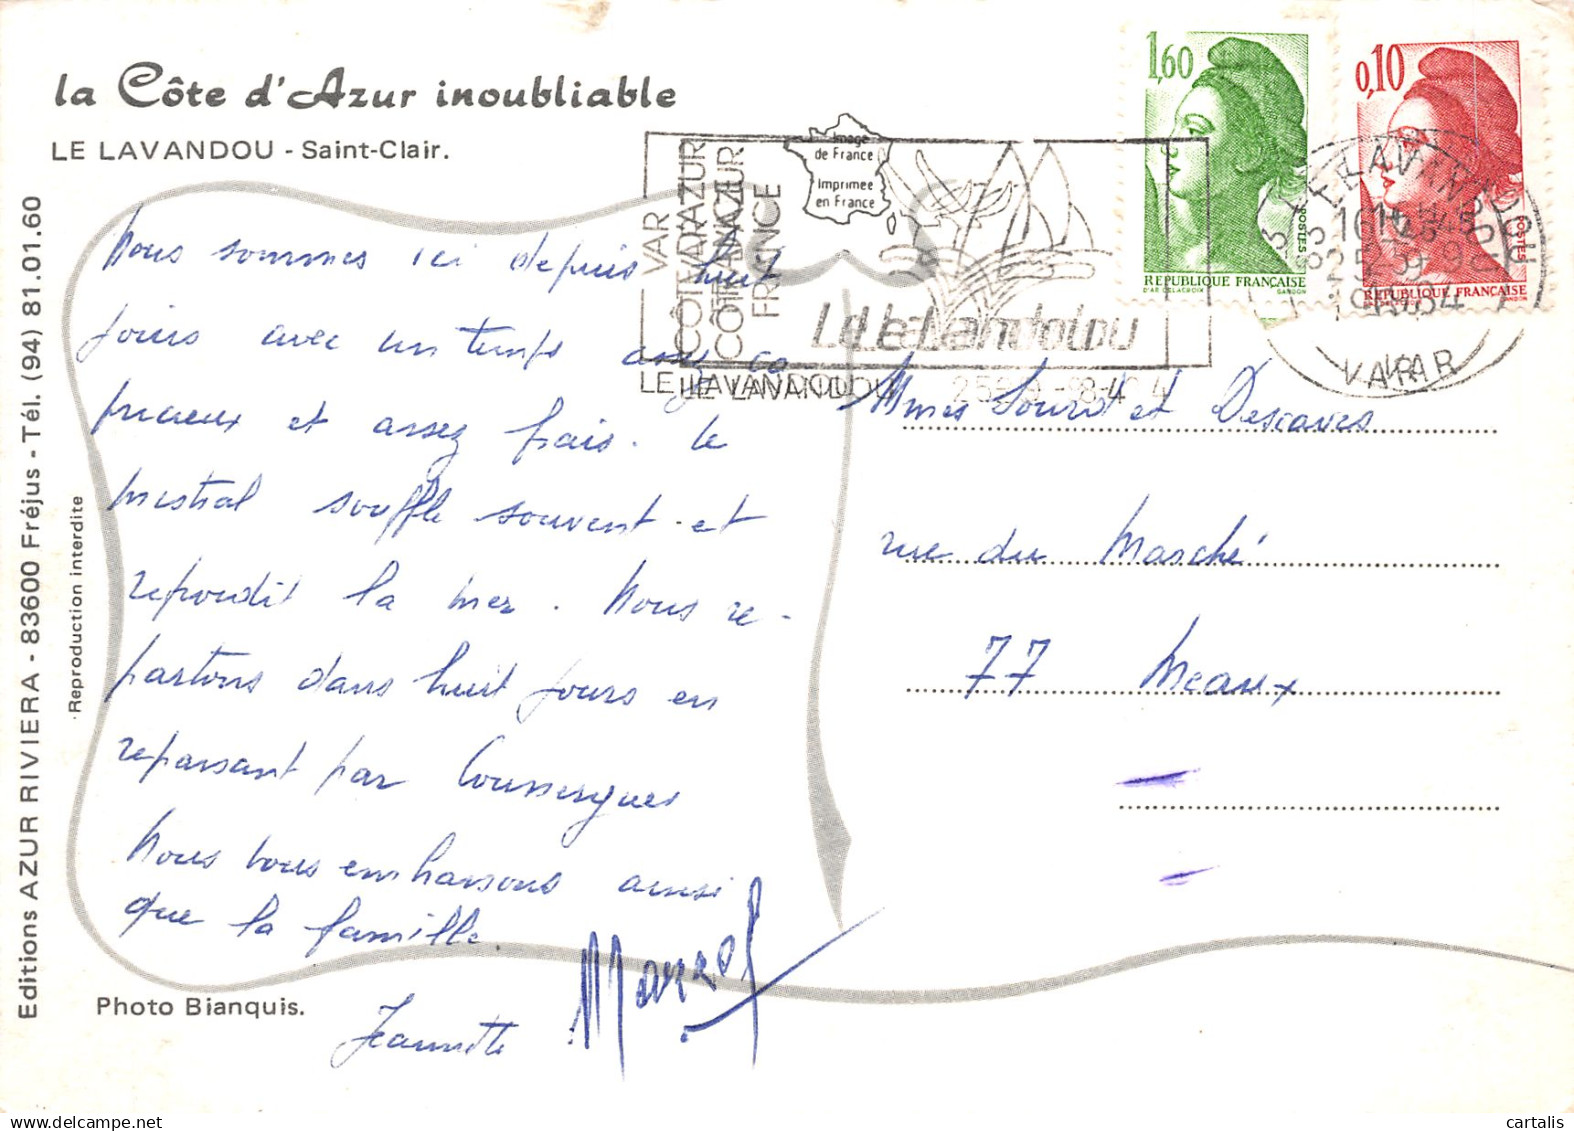 la Côte d'Azur inoubliable
LE LAVANDOU - Saint-Clair.
Editions AZUR RIVIERA - 83600 Fréjus - Tél. (94) 81.01.60
Reproduction interdite
Nous sommes ici depuis huit
jours avec un temps assez ca
pricieux et assez frais. Le
mistral souffle souvent et
refroidit la mer. Nous re-
partons dans huit jours en
repassant par Coussergues
Nous vous embrassons ainsi
que la famille.
Jeannette
Photo Bianquis.
Image
de France
Imprimée
en France
VAR
CÔTE D'AZUR
FRANCE
Le Lavandou
LE LAVANDOU
1,60
POSTES
REPUBLIQUE FRANÇAISE
D'AP. DELACROIX GANDON
0,10
POSTES
REPUBLIQUE FRANÇAISE
GANDON
LE LAVANDOU
VAR
Mmes Sourd et Descaves
rue du Marché
77 Meaux
cartalis
www.delcampe.net